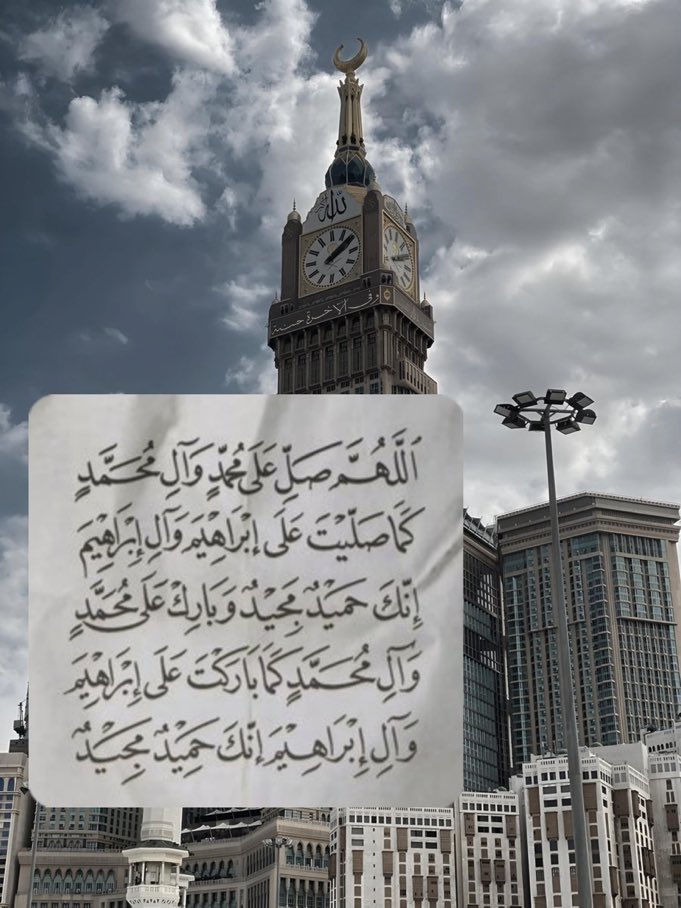 الله
وفي الآخرة حسنة
اَللَّهُمَّ صَلِّ عَلَى مُحَمَّدٍ وَآلِ مُحَمَّدٍ
كَمَا صَلَّيْتَ عَلَى إِبْرَاهِيْمَ وَآلِ إِبْرَاهِيْمَ
إِنَّكَ حَمِيْدٌ مَجِيْدٌ وَبَارِكْ عَلَى مُحَمَّدٍ
وَآلِ مُحَمَّدٍ كَمَا بَارَكْتَ عَلَى إِبْرَاهِيْمَ
وَآلِ إِبْرَاهِيْمَ إِنَّكَ حَمِيْدٌ مَجِيْدٌ